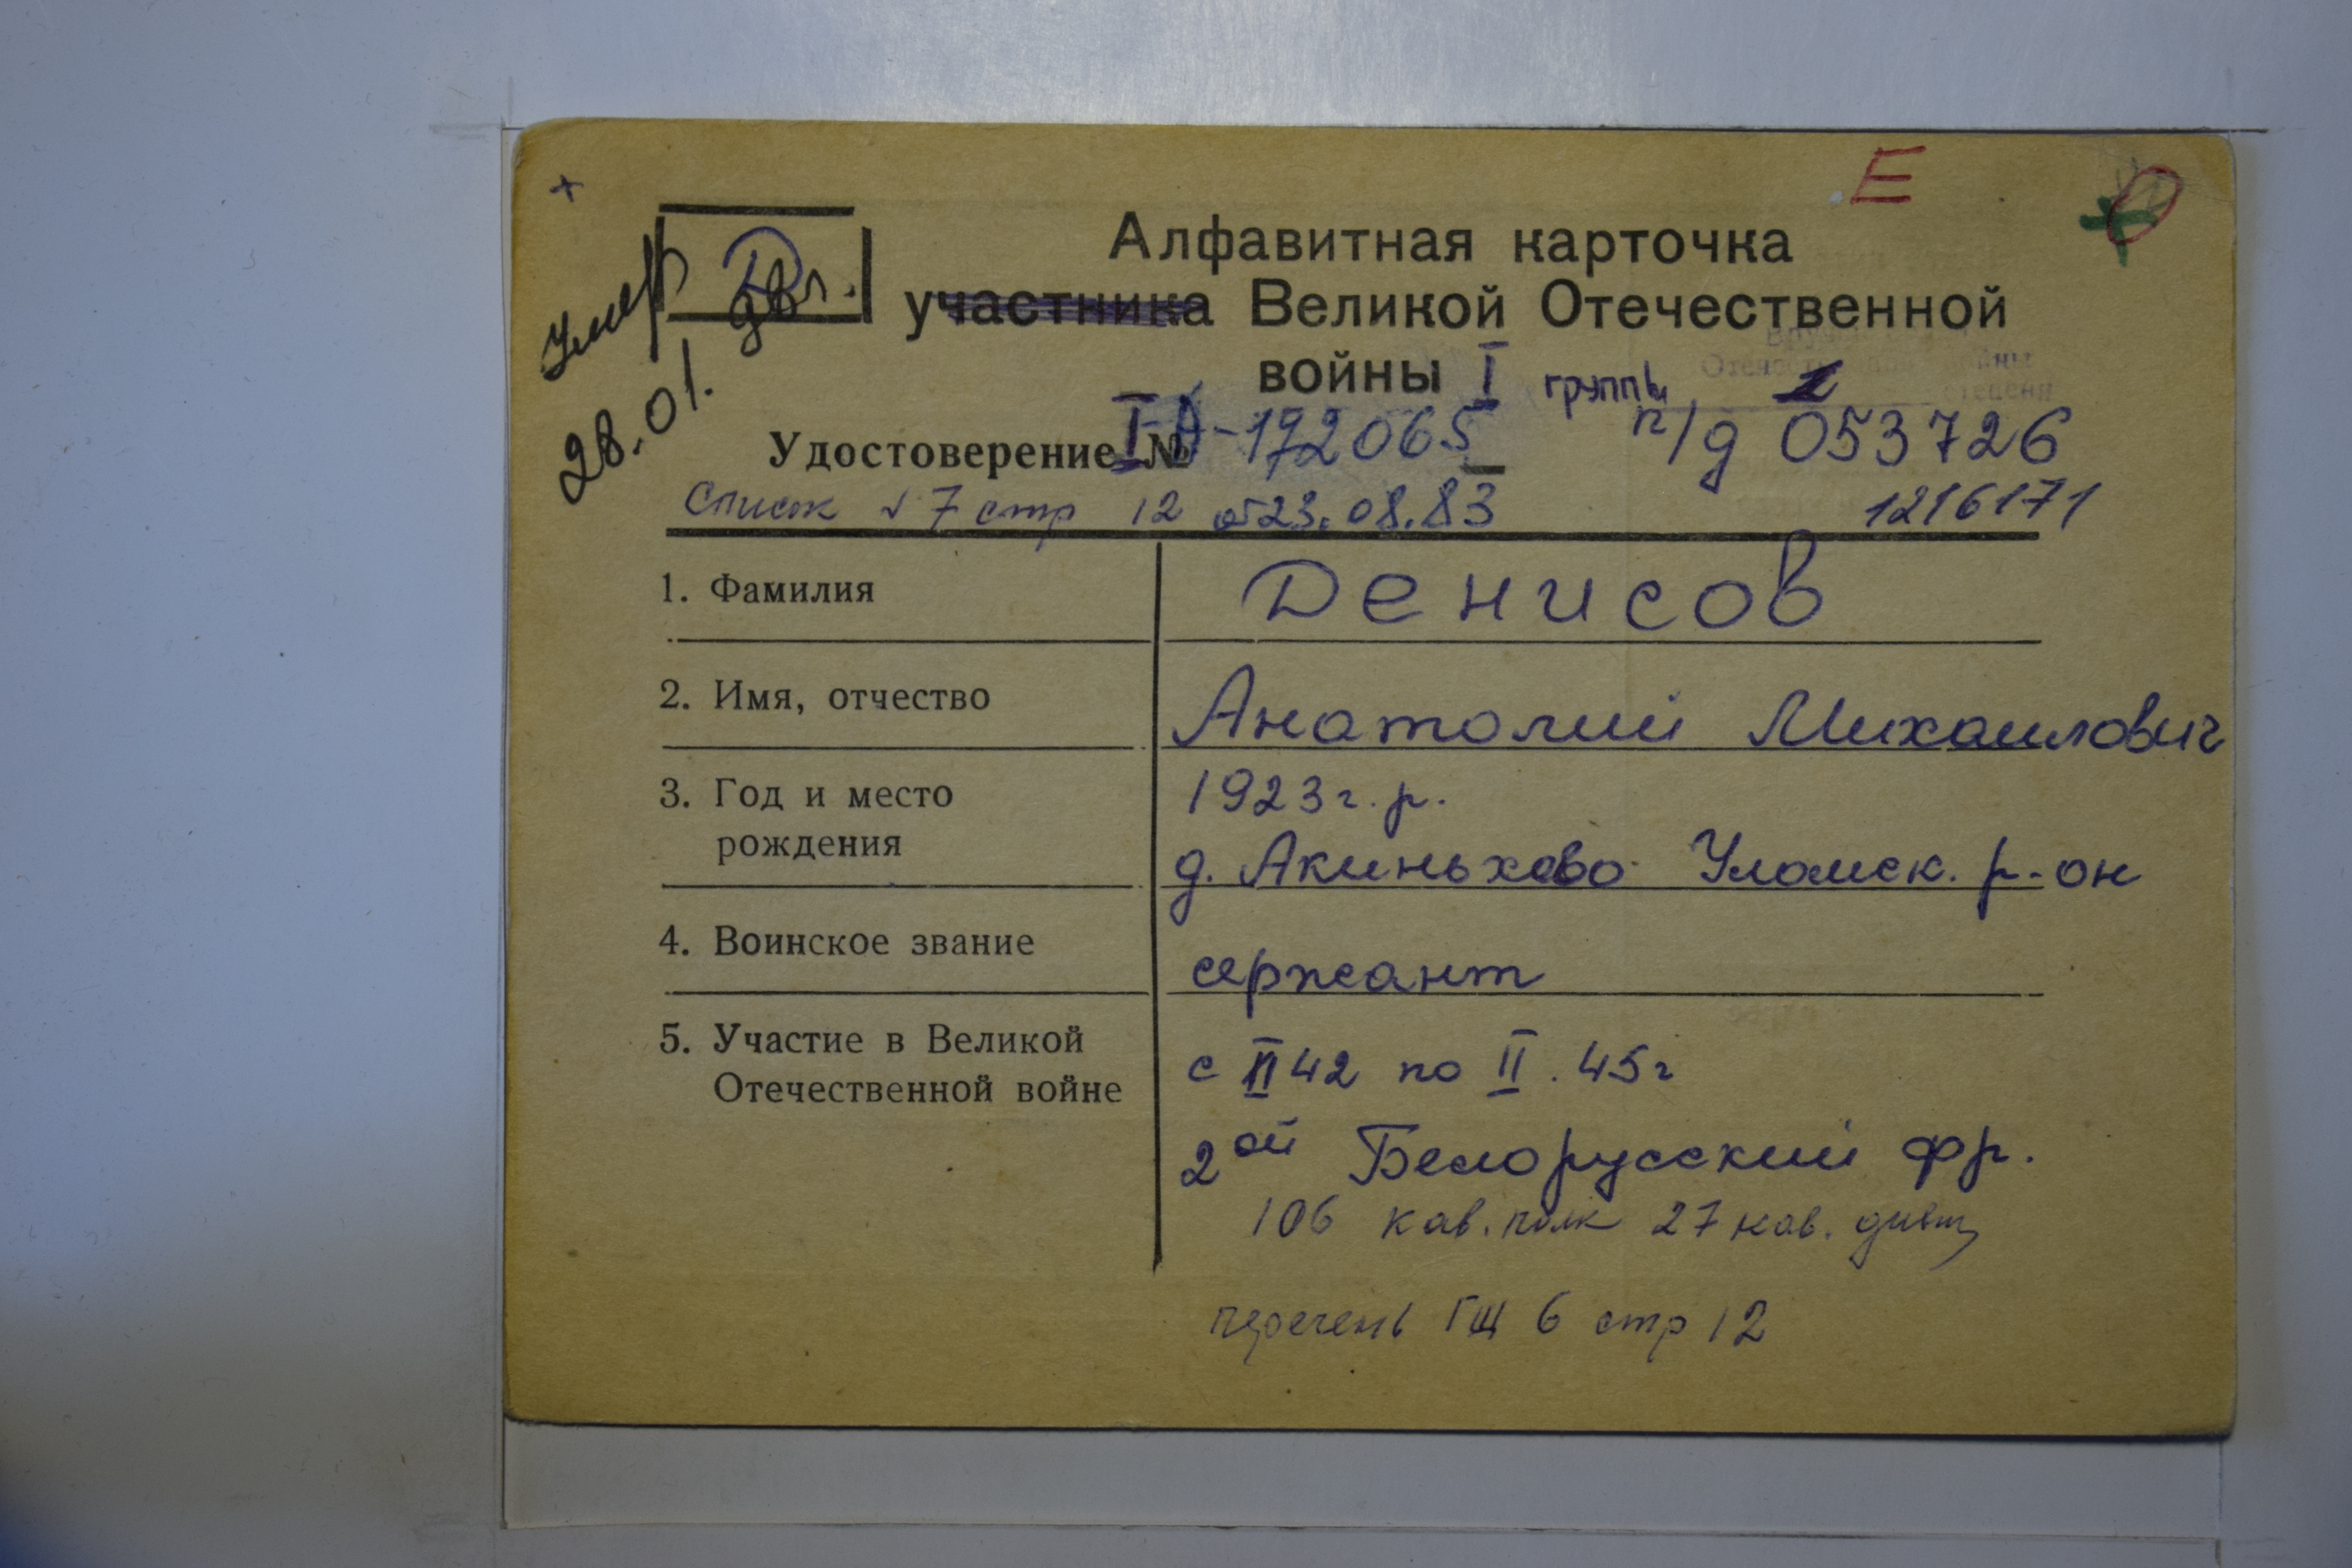 Е
Алфавитная карточка
участника Великой Отечественной
войны I группы
Умер
28.01.
Удостоверение № -192065 п/д 053726
Список №7 стр 12 от 23.08.83 1216171
1. Фамилия Денисов
2. Имя, отчество Анатолий Михаилович
3. Год и место 1923 г.р.
рождения д. Акиньхово Уломск. р-он
4. Воинское звание сержант
5. Участие в Великой с II 42 по II. 45г
Отечественной войне
2ой Белорусский фр.
106 кав. полк 27 кав. дивиз
перечень ГШ 6 стр 12